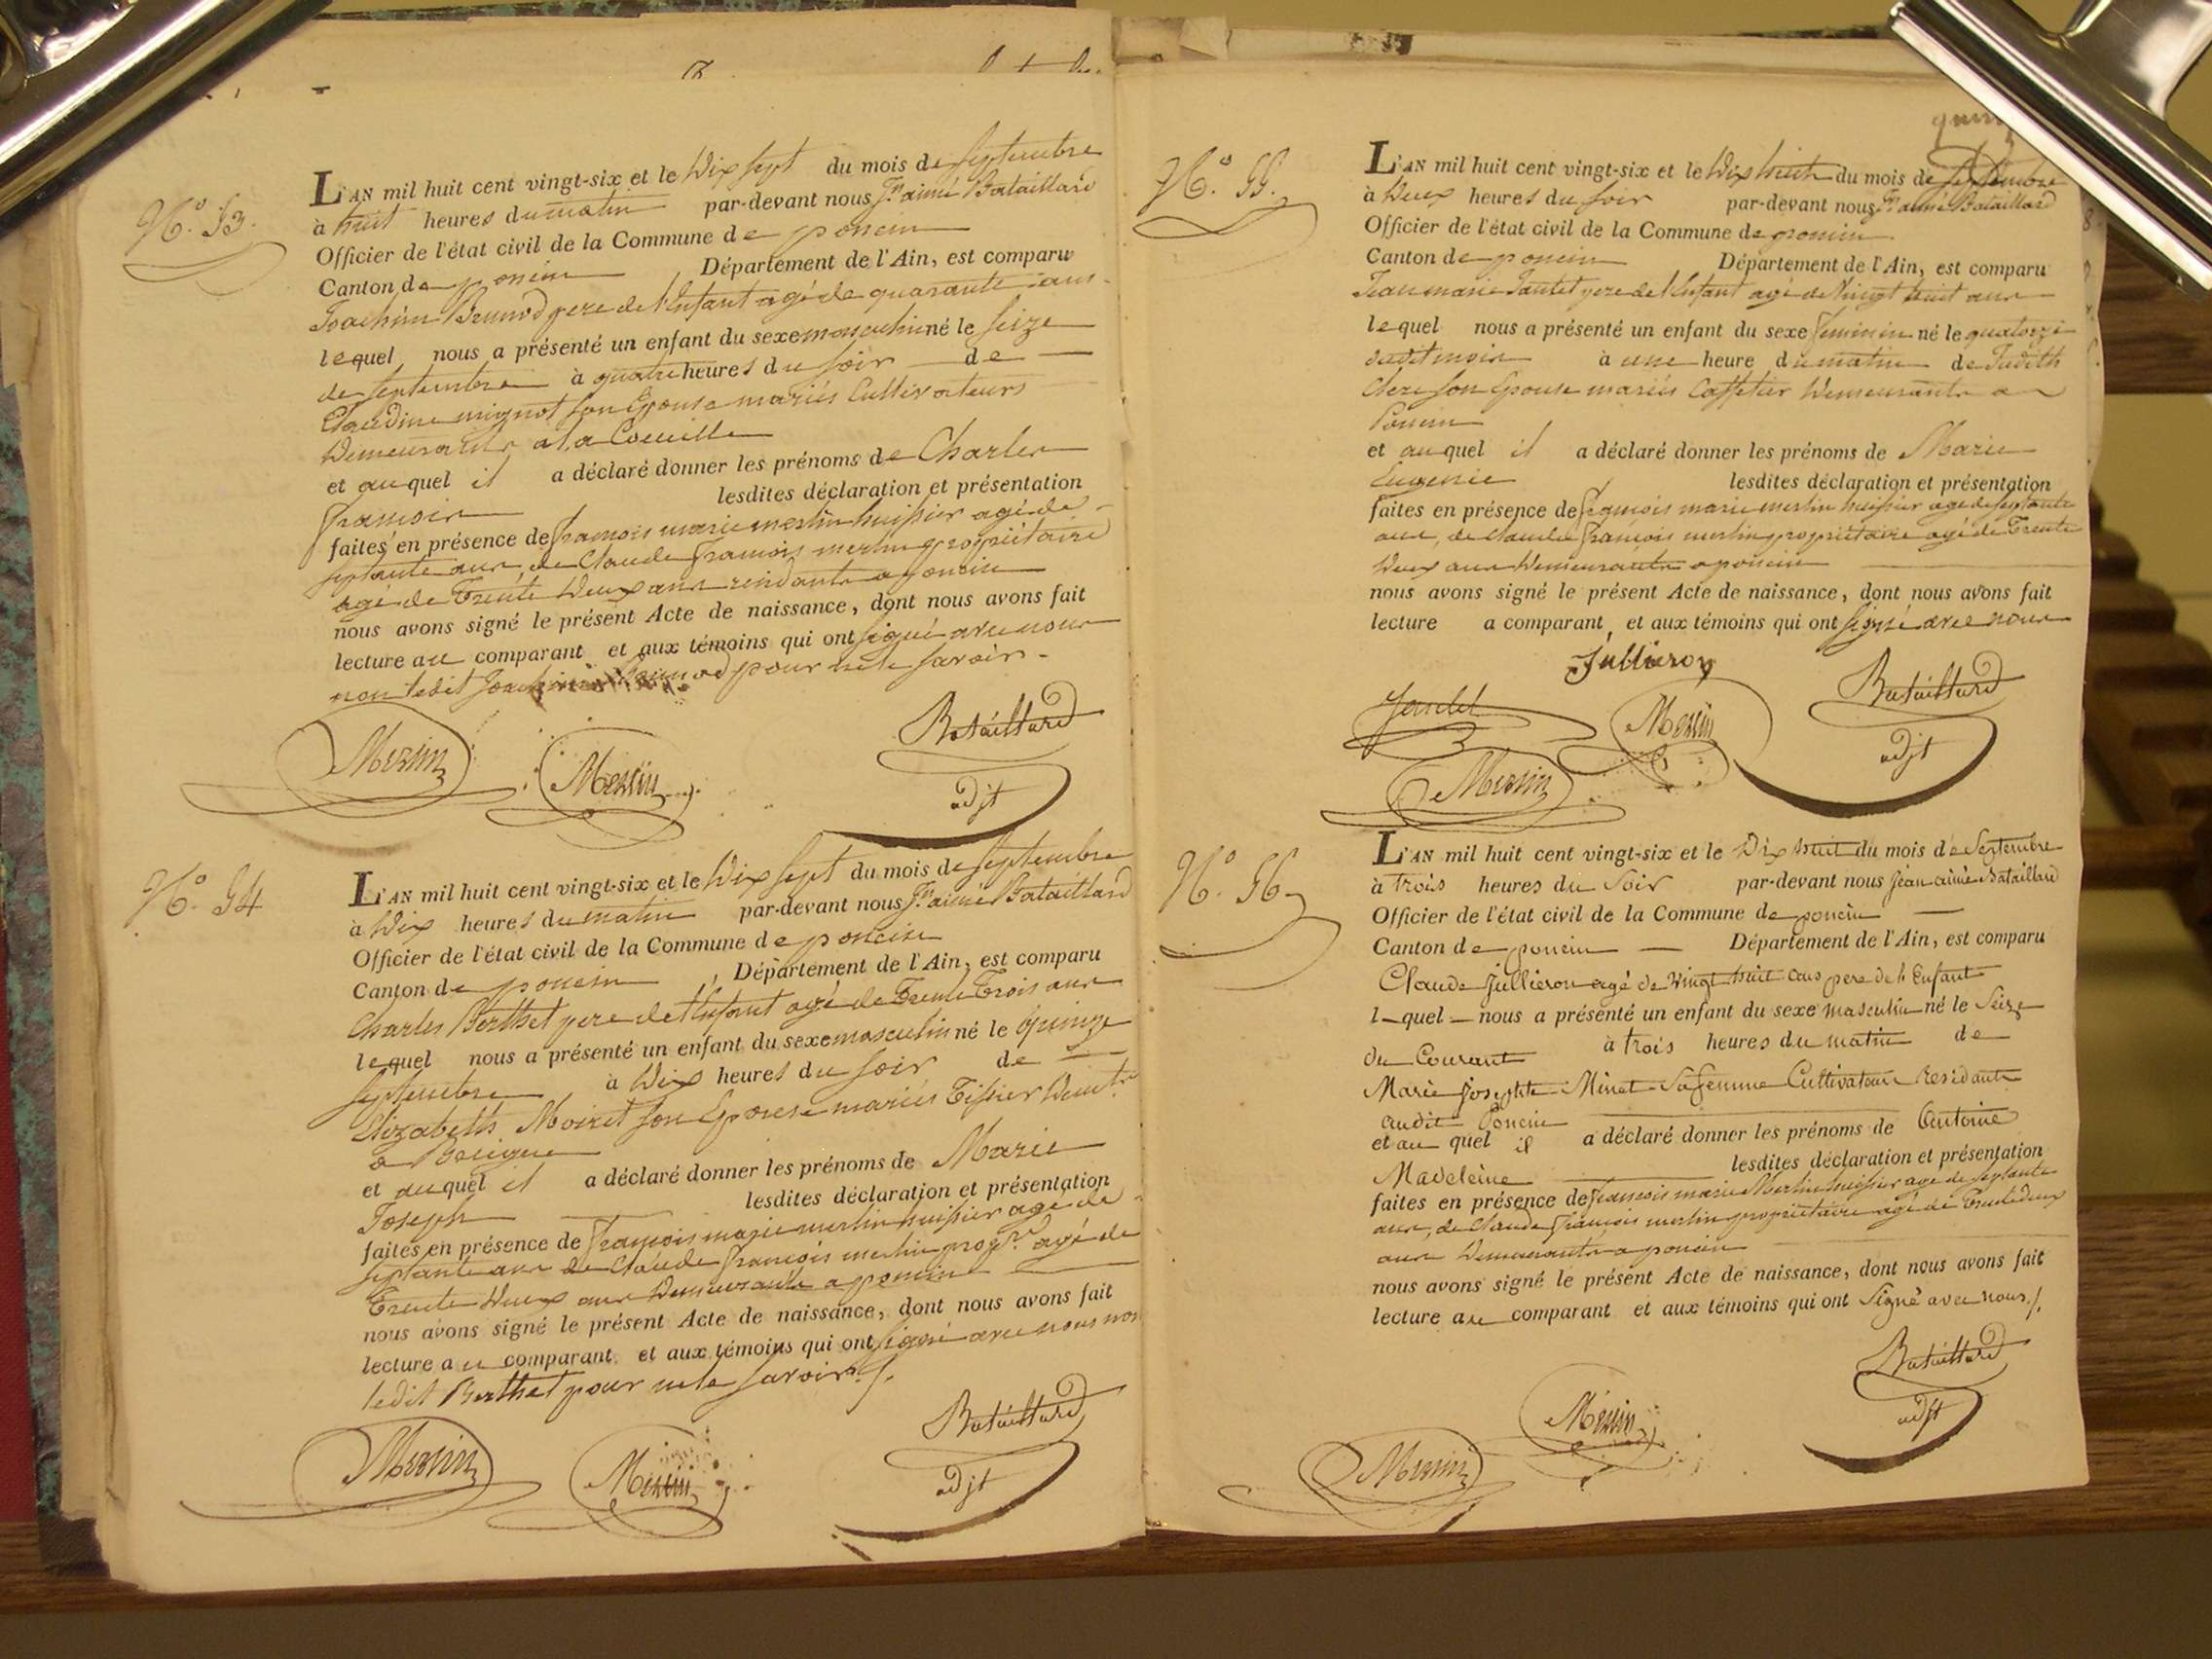 N.° 53.
L'AN mil huit cent vingt-six et le Dix Sept du mois de Septembre
à huit heures du matin par-devant nous Jn aimé Bataillard
Officier de l'état civil de la Commune de poncin
Canton de poncin Département de l'Ain, est comparu
Joachim Brunod pere de l'Enfant agé de quarante ans
lequel nous a présenté un enfant du sexe masculin né le seize
de septembre à quatre heures du soir de
Claudine mignot son Epouse mariés Cultivateurs
Demeurants a la Coeuille
et auquel il a déclaré donner les prénoms de Charles
françois lesdites déclaration et présentation
faites en présence de françois marie merlin huissier agé de
septante ans, de Claude françois merlin propriétaire
agé de Trente Deux ans residants a poncin
nous avons signé le présent Acte de naissance, dont nous avons fait
lecture au comparant et aux témoins qui ont signé avec nous
non ledit Joachim Brunod pour ne le savoir.
Merlin Merlin Bataillard
adjt
N.° 54
L'AN mil huit cent vingt-six et le Dix Sept du mois de Septembre
à Dix heures du matin par-devant nous Jn aimé Bataillard
Officier de l'état civil de la Commune de poncin
Canton de poncin, Département de l'Ain, est comparu
Charles Berthet pere de l'Enfant agé de Trente Trois ans
lequel nous a présenté un enfant du sexe masculin né le Quinze
septembre à Dix heures du soir de
Elizabeth Moiret son Epouse mariés Tissier Demts
a
et auquel il a déclaré donner les prénoms de Marie
Joseph lesdites déclaration et présentation
faites en présence de françois marie merlin huissier agé de
septante ans de Claude françois merlin propre agé de
Trente Deux ans Demeurants a poncin
nous avons signé le présent Acte de naissance, dont nous avons fait
lecture au comparant et aux témoins qui ont signé avec nous non
ledit Berthet pour ne le savoir./.
Merlin Merlin Bataillard
adjt
N.° 55.
L'AN mil huit cent vingt-six et le Dix huit du mois de Septembre
à Deux heures du soir par-devant nous Jn aimé Bataillard
Officier de l'état civil de la Commune de poncin
Canton de poncin Département de l'Ain, est comparu
Jean marie Jantet pere de l'Enfant agé de Vingt huit ans
lequel nous a présenté un enfant du sexe feminin né le quatorze
dudit mois à une heure du matin de Judith
Clere son Epouse mariés Caffetier Demeurants a
Poncin
et auquel il a déclaré donner les prénoms de Marie
Eugenie lesdites déclaration et présentation
faites en présence de françois marie merlin huissier agé de septante
ans, de Claude françois merlin propriétaire agé de Trente
Deux ans Demeurants a poncin
nous avons signé le présent Acte de naissance, dont nous avons fait
lecture a comparant et aux témoins qui ont signé avec nous
Jullieron
Merlin Bataillard
Merlin adjt
N.° 56
L'AN mil huit cent vingt-six et le Dix huit du mois de Septembre
à trois heures du Soir par-devant nous Jean aimé Bataillard
Officier de l'état civil de la Commune de poncin
Canton de poncin Département de l'Ain, est comparu
Claude Jullieron agé de vingt huit ans pere de l'Enfant
l quel nous a présenté un enfant du sexe masculin né le Seize
du Courant à trois heures du matin de
Marie Josephte Minet Sa femme Cultivateurs residants
audit Poncin
et au quel il a déclaré donner les prénoms de Antoine
Madeleine lesdites déclaration et présentation
faites en présence de françois marie Merlin huissier age de septante
ans, de Claude françois merlin propriétaire agé de Trente deux
ans Demeurants a poncin
nous avons signé le présent Acte de naissance, dont nous avons fait
lecture au comparant et aux témoins qui ont Signé avec nous./.
Bataillard
Merlin adjt
Merlin